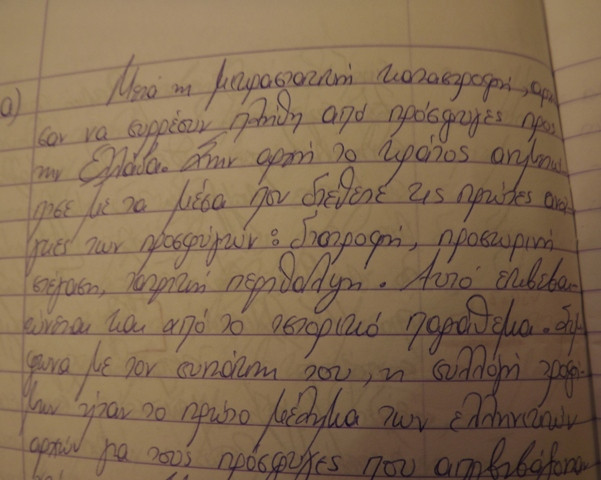 α)
Μετά τη μικρασιατική καταστροφή, άρχι
σαν να συρρέουν πλήθη από πρόσφυγες προς
την Ελλάδα. Στην αρχή το κράτος αντιμετώ
πισε με τα μέσα που διέθετε τις πρώτες ανά
γκες των προσφύγων: διατροφή, προσωρινή
στέγαση, ιατρική περίθαλψη. Αυτό επιβεβαι-
ώνεται και από το ιστορικό παράθεμα. Σύμ-
φωνα με τον συντάκτη του, η συλλογή τροφί-
μων ήταν το πρώτο μέλημα των ελληνικών
αρχών για τους πρόσφυγες που αποβιβάζονταν